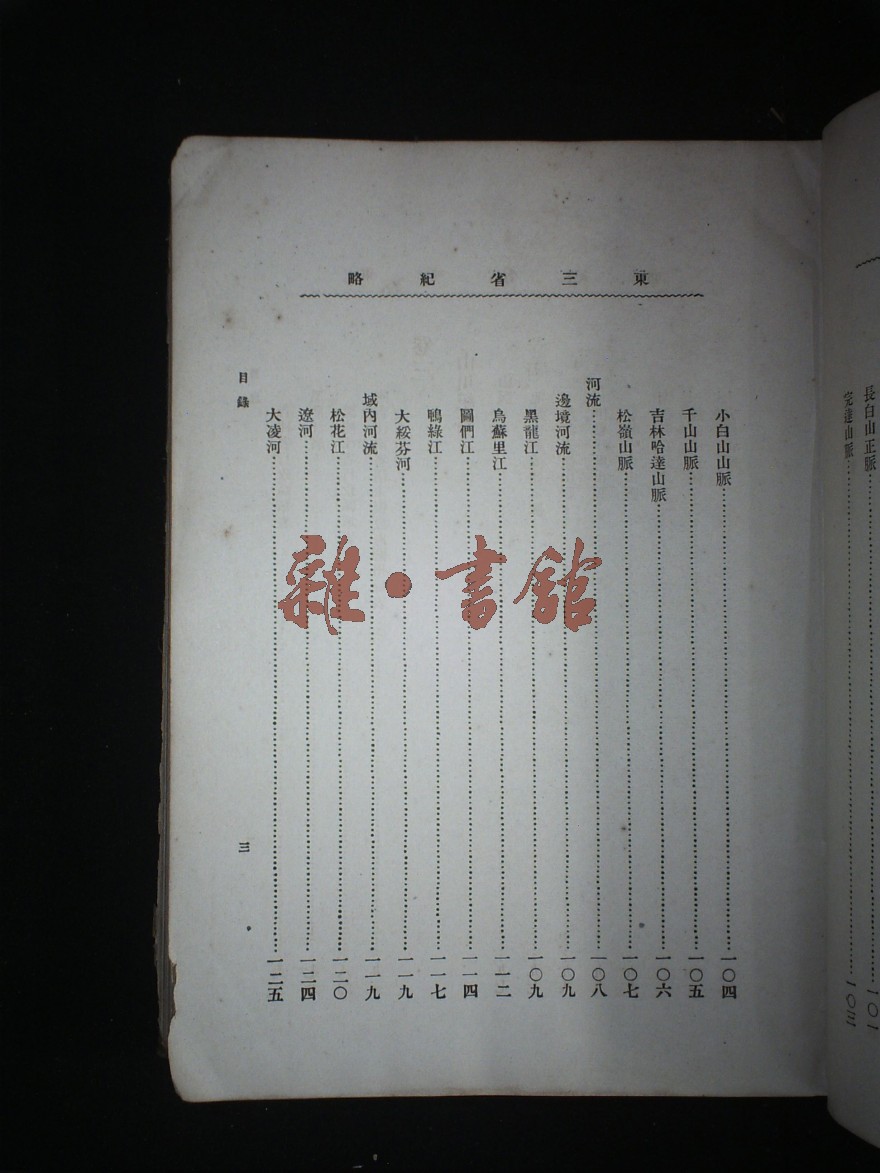 長白山正脈……一〇一
完達山脈……一〇三
東三省紀略
小白山山脈……一〇四
千山山脈……一〇五
吉林哈達山脈……一〇六
松嶺山脈……一〇七
河流……一〇八
邊境河流……一〇九
黑龍江……一〇九
烏蘇里江……一一二
圖們江……一一四
鴨綠江……一一七
大綏芬河……一一九
域內河流……一一九
松花江……一二〇
遼河……一二四
大凌河……一二五
目錄
三
雜·書館